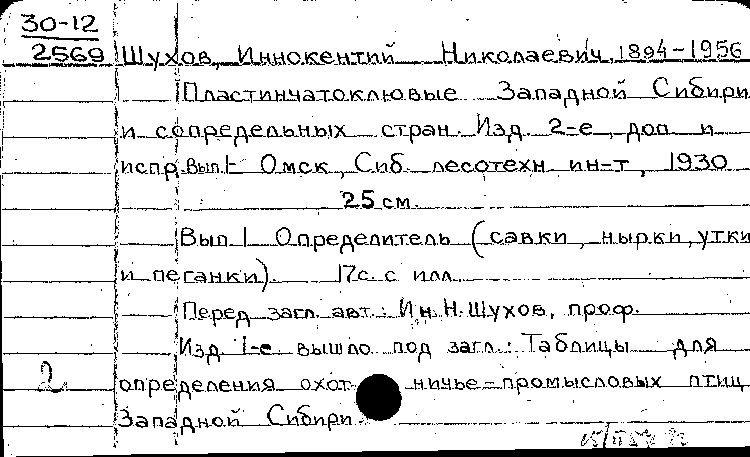 30-12
2569 Шухов, Иннокентий Николаевич, 1894-1956
Пластинчатоклювые Западной Сибири
и сопредельных стран. Изд. 2-е, доп. и
испр. Вып. 1- Омск, Сиб. лесотехн. ин-т, 1930
25 см.
Вып. 1 Определитель (савки, нырки, утки
и пеганки). 17с. с илл.
Перед загл. авт.: Ин. Н. Шухов, проф.
Изд. 1-е вышло под загл.: Таблицы для
2 определения охотничье-промысловых птиц
Западной Сибири.